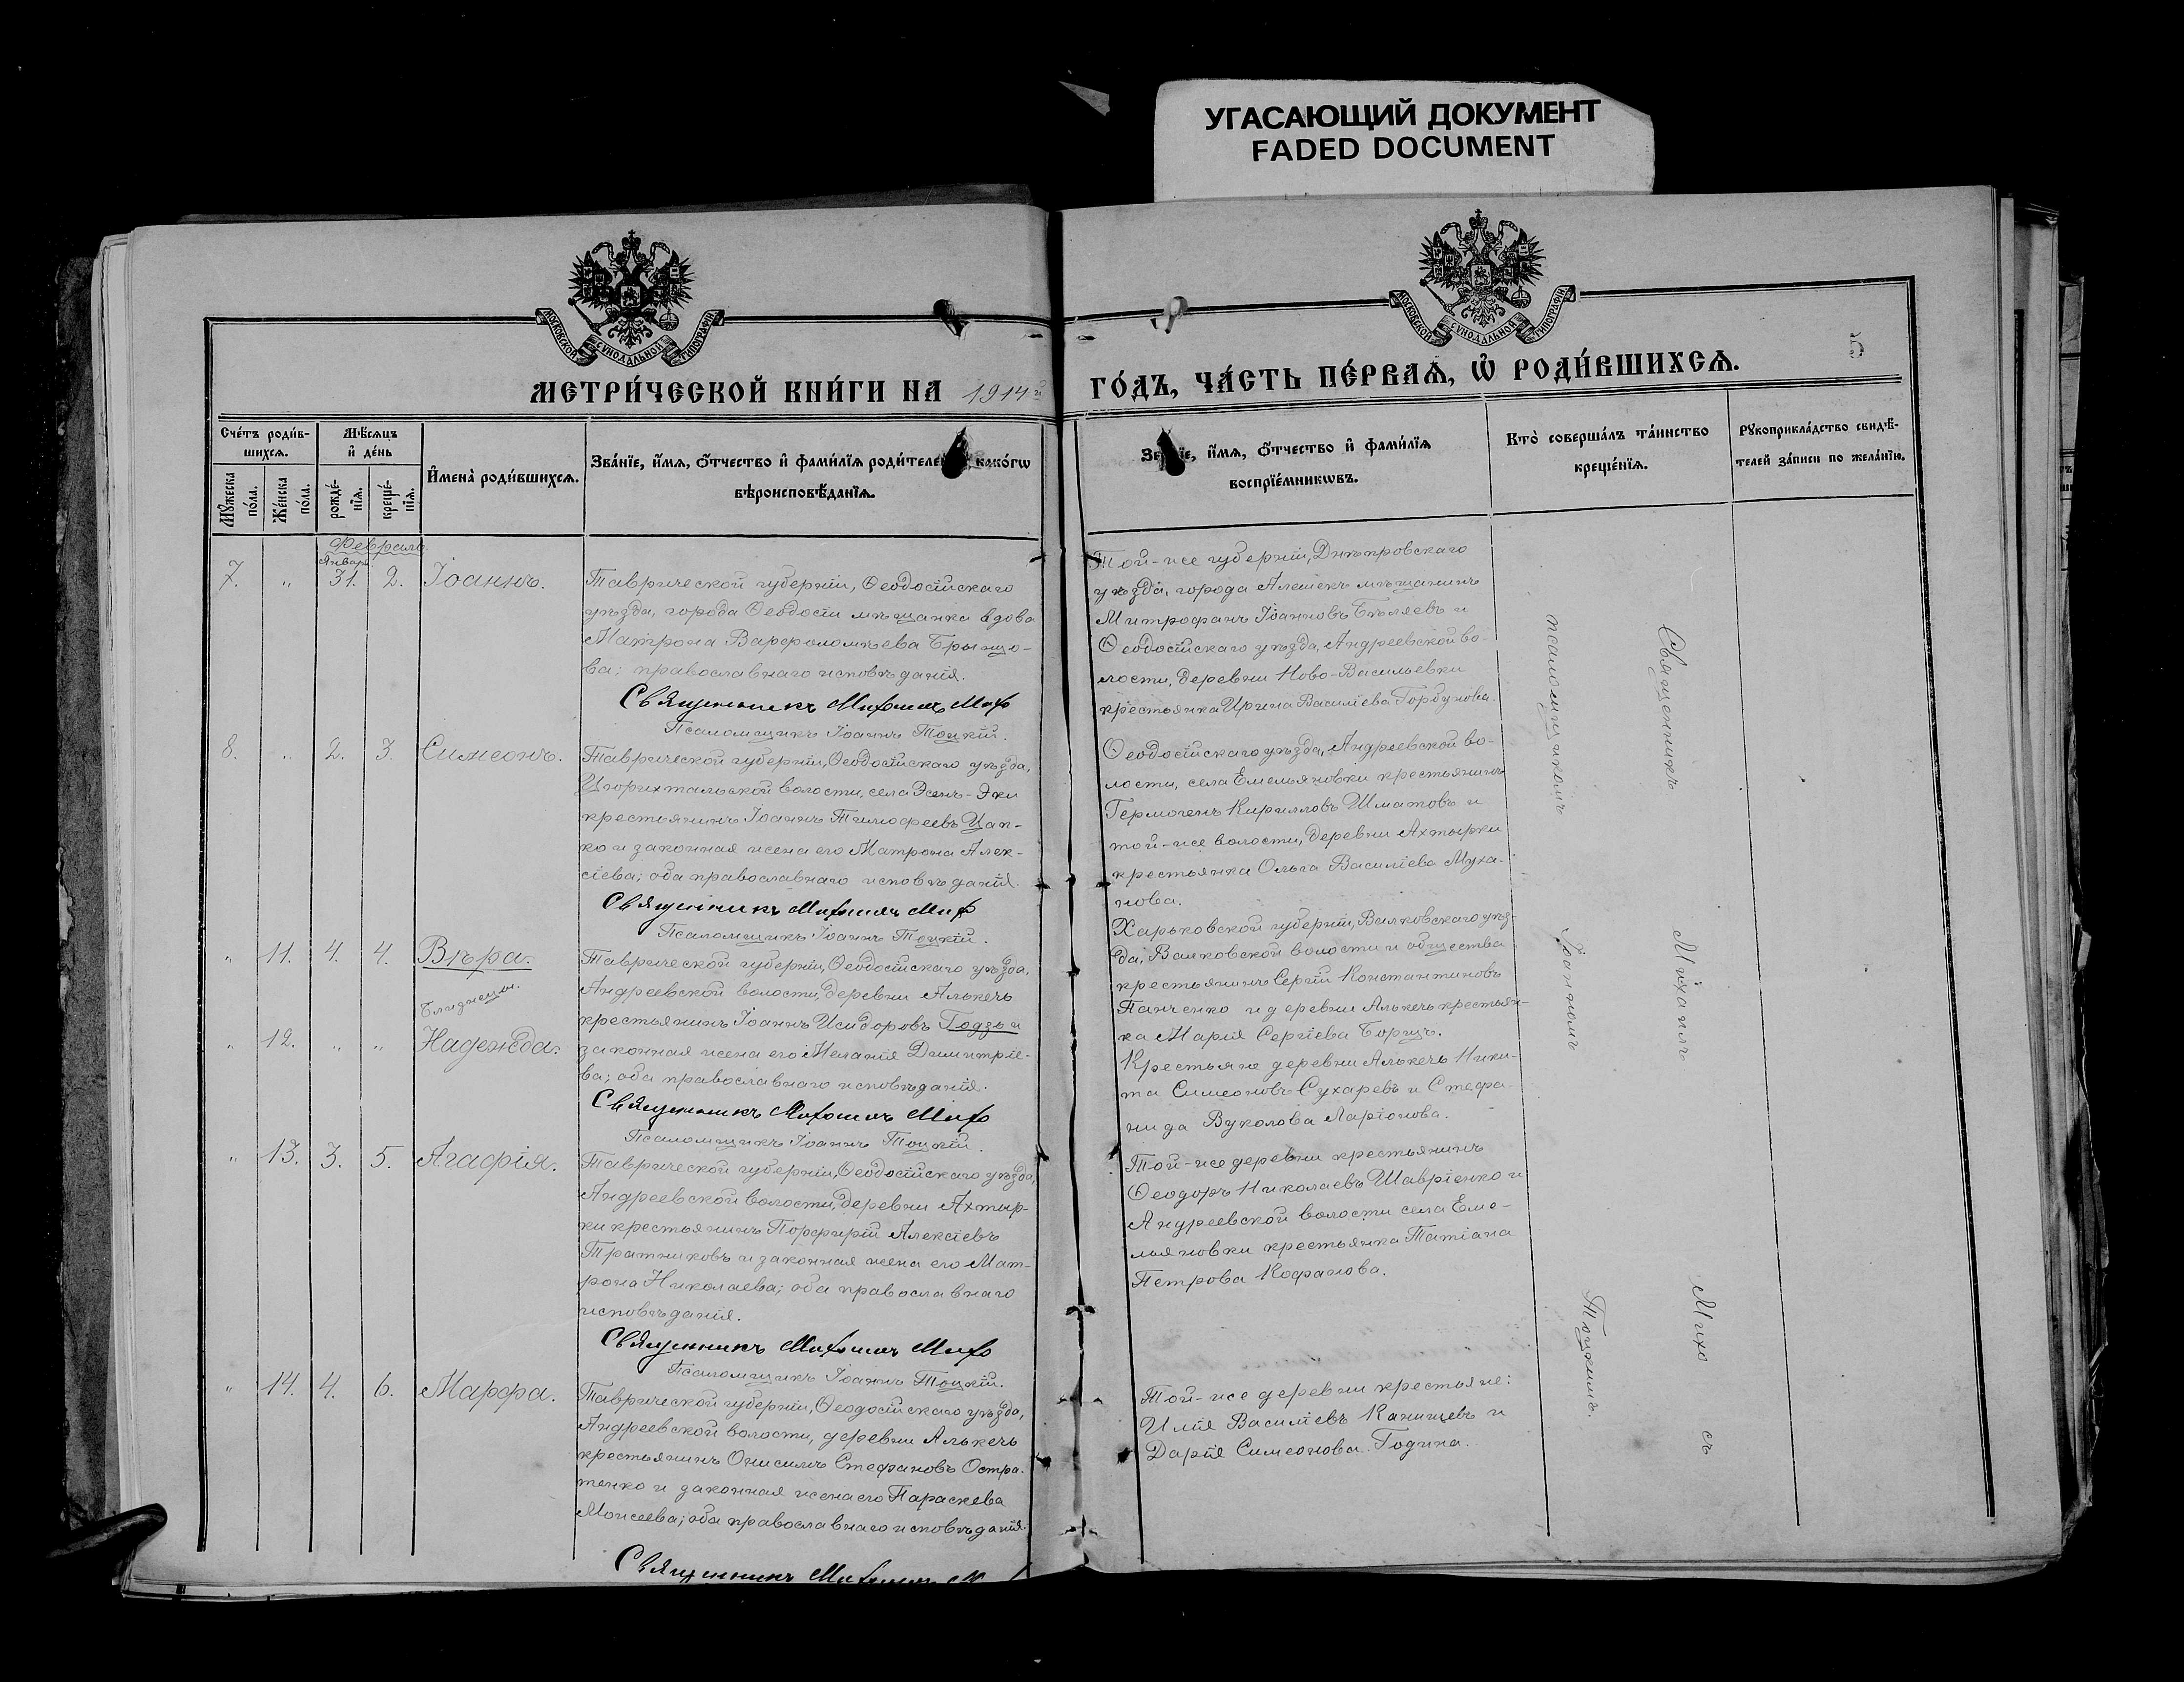 УГАСАЮЩИЙ ДОКУМЕНТ
FADED DOCUMENT
МОСКОВСКОЙ СѴНОДАЛЬНОЙ ТИПОГРАФІИ
МОСКОВСКОЙ СѴНОДАЛЬНОЙ ТИПОГРАФІИ
5
МЕТРИ́ЧЕСКОЙ КНИ́ГИ НА 1914 й
ГО́ДЪ, ЧА́СТЬ ПЕ́РВАѦ, Ѡ҆ РОДИ́ВШИХСѦ.
Сче́тъ роди́в-
шихсѧ.
Мѣ́сѧцъ
и҆ де́нь
Мꙋ́жеска
по́ла.
Же́нска
по́ла.
рожде́-
нїѧ.
креще́-
нїѧ.
И҆мена̀ роди́вшихсѧ.
Зва́нїе, и҆́мѧ, ѻ҆́тчество и҆ фами́лїѧ роди́телей како́гѡ
вѣроисповѣ́данїѧ.
Зва́нїе, и҆́мѧ, ѻ҆́тчество и҆ фами́лїѧ
воспрїе́мникѡвъ.
Кто̀ соверша́лъ та́инство
креще́нїѧ.
Рꙋкоприкла́дство свидѣ́-
телей за́писи по жела́нїю.
Февраль.
Январ.
7. „ 31. 2. Іоаннъ.
Таврической губерніи, Ѳеодосійскаго
уѣзда, города Ѳеодосіи мѣщанка вдова
Матрона Варфоломѣева Брынцо-
ва; православнаго исповѣданія.
Священникъ Михаилъ Михо
Псаломщикъ Іоаннъ Тоцкій.
Той-же губерніи, Днѣпровскаго
уѣзда, города Алешекъ мѣщанинъ
Митрофанъ Іоанновъ Бѣляевъ и
Ѳеодосійскаго уѣзда, Андреевской во-
лости, деревни Ново-Васильевки
крестьянка Ирина Василіева Горбунова.
8. „ 2. 3. Симеонъ.
Таврической губерніи, Ѳеодосійскаго уѣзда,
Цюрихтальской волости, села Эсенъ-Эки
крестьянинъ Іоаннъ Тимофеевъ Цап-
ко и законная жена его Матрона Алек-
сіева; оба православнаго исповѣданія.
Священникъ Михаилъ Михо
Псаломщикъ Іоаннъ Тоцкій.
Ѳеодосійскаго уѣзда, Андреевской во-
лости, села Емельяновки крестьянинъ
Гермогенъ Кирилловъ Шматовъ и
той-же волости, деревни Ахтырки
крестьянка Ольга Василіева Муха-
нова.
„ 11. 4. 4. Вѣра.
Близнецы.
„ 12. „ „ Надежда.
Таврической губерніи, Ѳеодосійскаго уѣзда,
Андреевской волости, деревни Алькечь
крестьянинъ Іоаннъ Исидоровъ Годзь и
законная жена его Меланія Димитріе-
ва; оба православнаго исповѣданія.
Священникъ Михаилъ Михо
Псаломщикъ Іоаннъ Тоцкій.
Харьковской губерніи, Валковскаго уѣз-
да, Валковской волости и общества
крестьянинъ Сергій Константиновъ
Панченко и деревни Алькечь крестьян-
ка Марія Сергіева Борщъ.
Крестьяне деревни Алькечь Ники-
та Симеоновъ Сухаревъ и Стефа-
нида Вуколова Ларіонова.
„ 13. 3. 5. Агафія.
Таврической губерніи, Ѳеодосійскаго уѣзда,
Андреевской волости, деревни Ахтыр-
ки крестьянинъ Порфирій Алексіевъ
Тратниковъ и законная жена его Мат-
рона Николаева; оба православнаго
исповѣданія.
Священникъ Михаилъ Михо
Псаломщикъ Іоаннъ Тоцкій.
Той-же деревни крестьянинъ
Ѳеодоръ Николаевъ Шавріенко и
Андреевской волости села Еме-
льяновки крестьянка Татіана
Петрова Кофанова.
„ 14. 4. 6. Марфа.
Таврической губерніи, Ѳеодосійскаго уѣзда,
Андреевской волости, деревни Алькечь
крестьянинъ Онисимъ Стефановъ Остра-
тенко и законная жена его Параскева
Моисеева; оба православнаго исповѣданія.
Священникъ Михаилъ
Той-же деревни крестьяне:
Илія Василіевъ Канищевъ и
Дарія Симеонова Година.
Священникъ Михаилъ Михо съ
псаломщикомъ Іоанномъ Тоцкимъ.